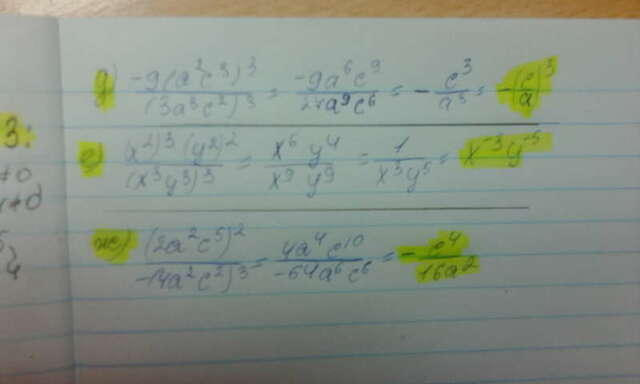 3:
д) -9(a²c³)³ / (3a³c²)³ = -9a⁶c⁹ / 27a⁹c⁶ = - c³/a³ = -(c/a)³
е) (x²)³ (y²)² / (x³y³)³ = x⁶ y⁴ / x⁹ y⁹ = 1 / x³y⁵ = x⁻³y⁻⁵
ж) (2a²c⁵)² / -(4a²c²)³ = 4a⁴c¹⁰ / -64a⁶c⁶ = - c⁴ / 16a²